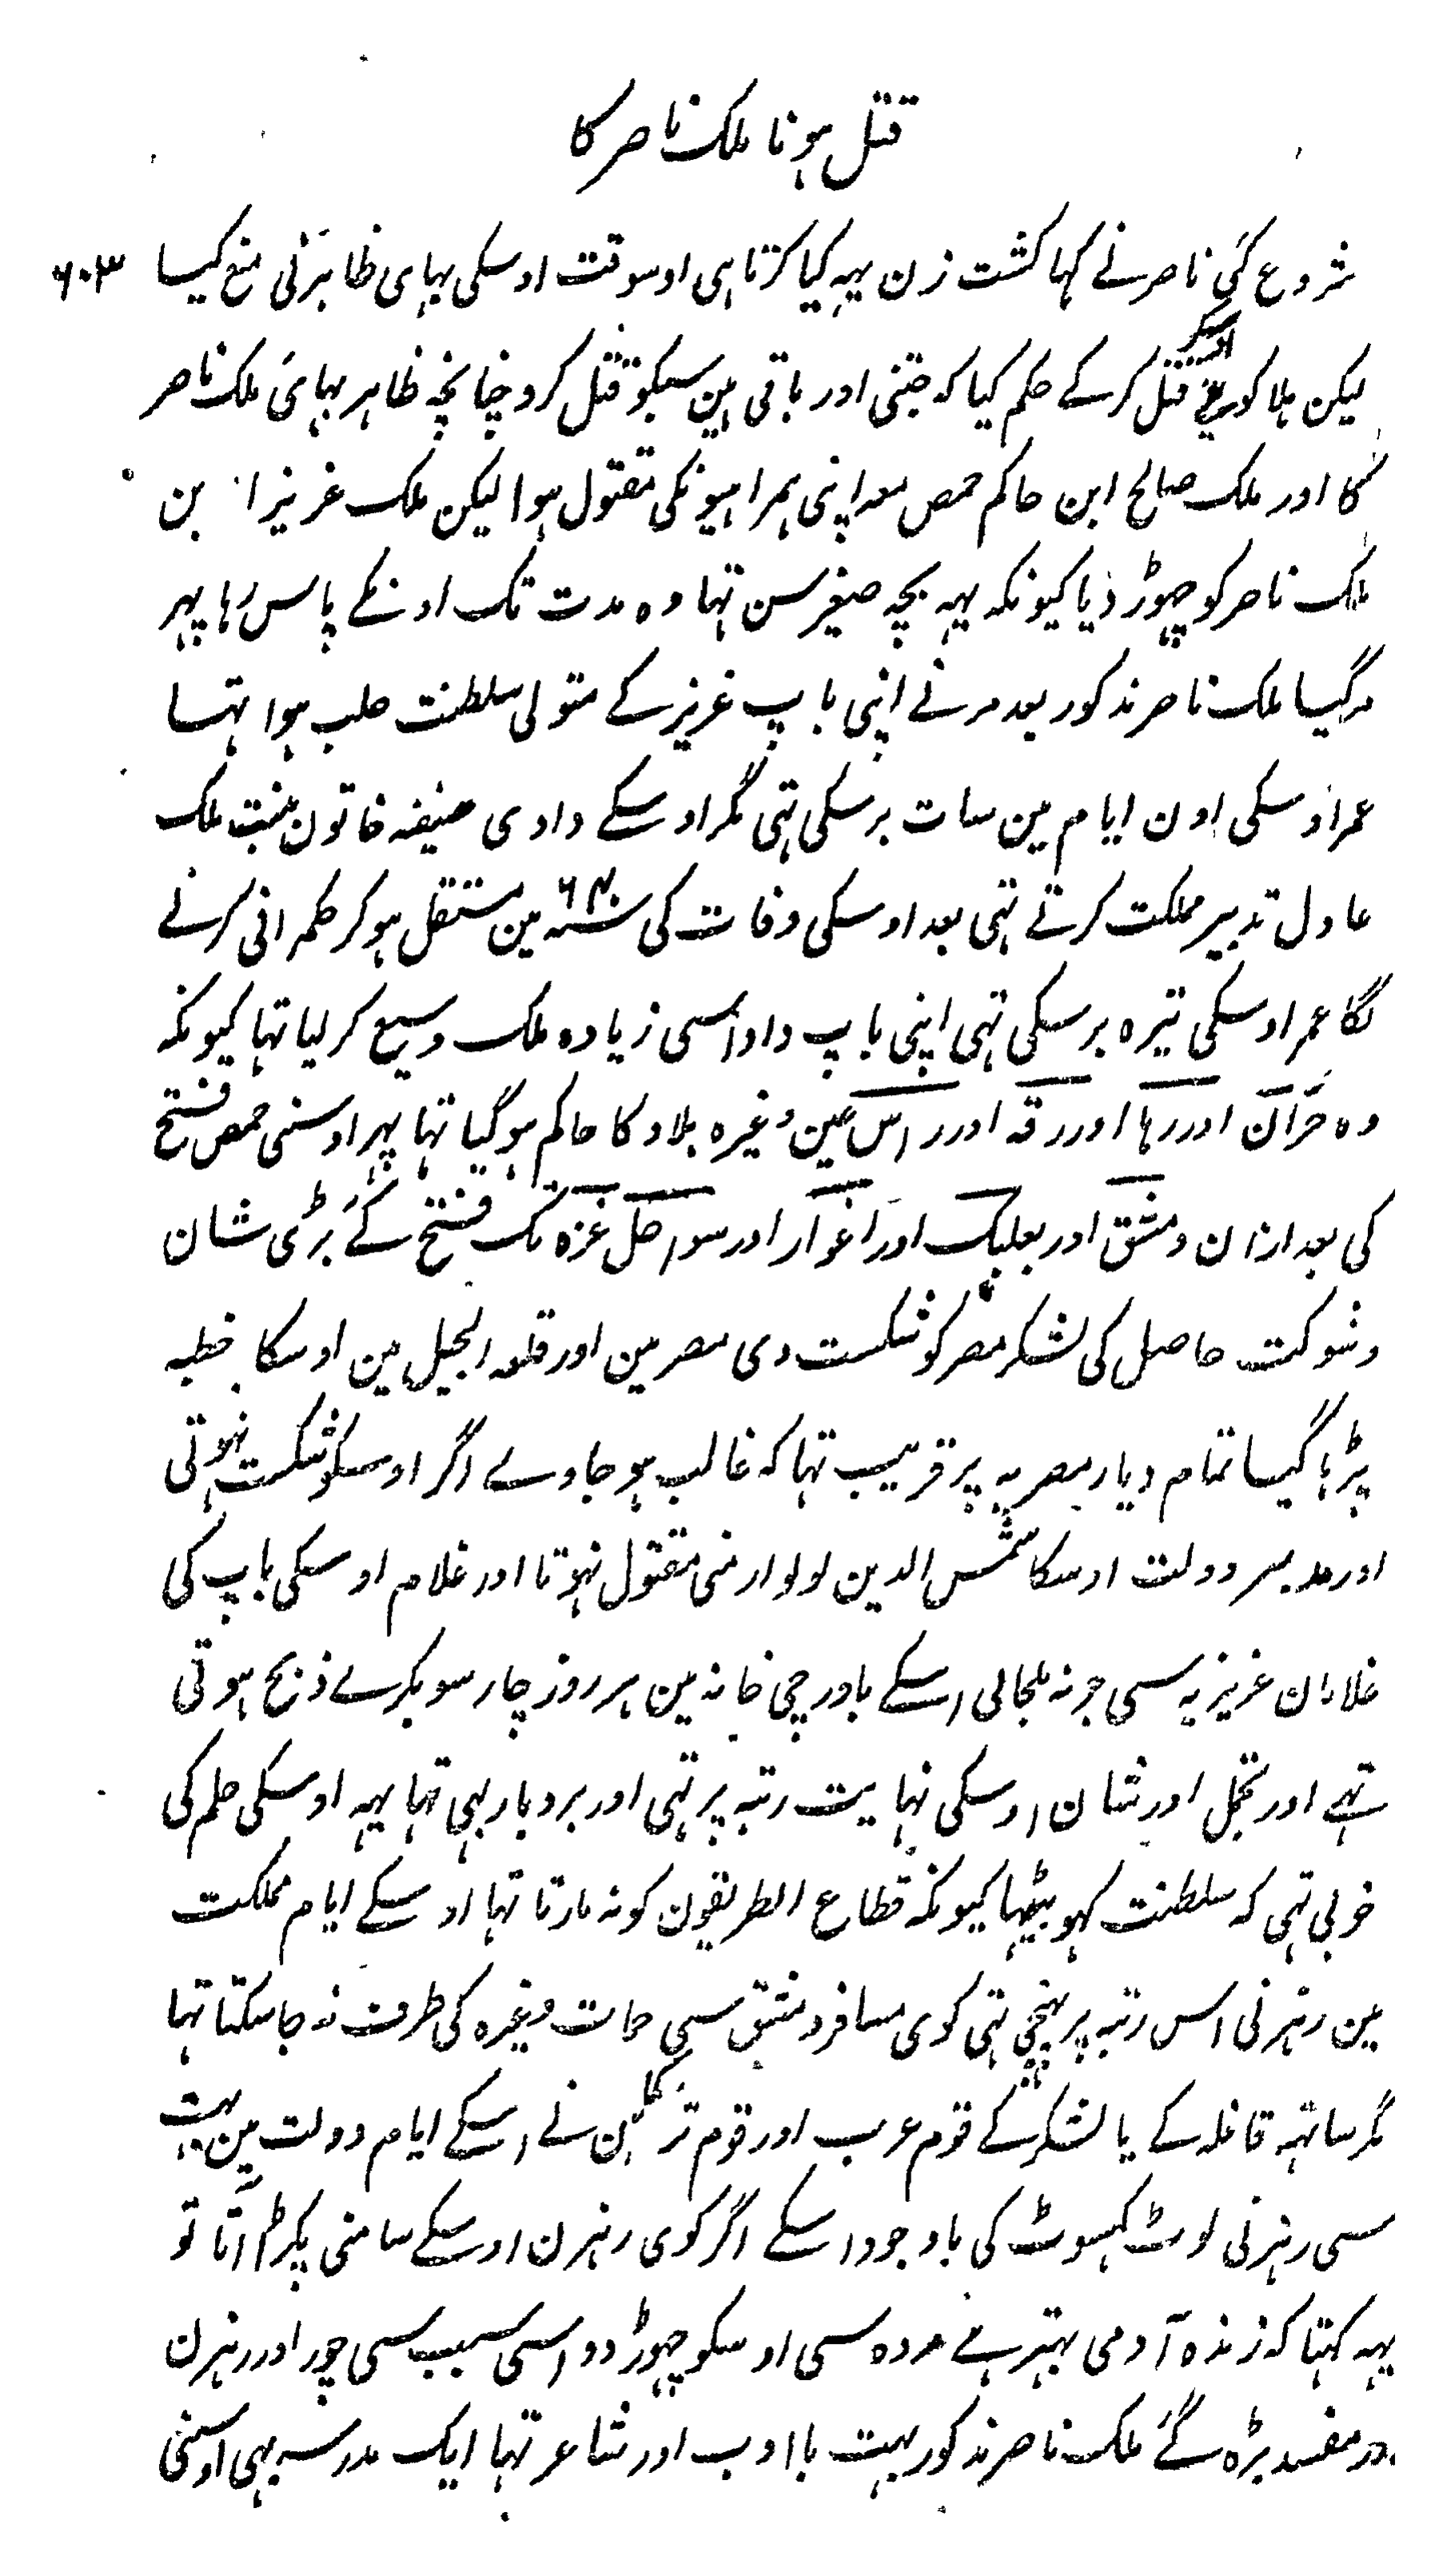 قتل ہونا ملک ناصر کا
شروع کئی ناصر نے کہا کشت زن یہہ کیا کرتا ہی اوسوقت اوسکی بہای ظاہر نی منع کیسا ۶۰۳
لیکن ہلاکو نے اوسکو قتل کرکے حکم کیا کہ جتنی اور باقی ہین سبکو قتل کرو چنانچہ ظاہر بہائی ملک ناصر
کا اور ملک صالح ابن حاکم حمص معہ اپنی ہمراہیونکی مقتول ہوا لیکن ملک عزیز ابن
ملک ناصر کو چھوڑ دیا کیونکہ یہہ بچہ صغیر سن تہا وہ مدت تک اونکے پاس رہا پہر
مرگیسا ملک ناصر مذکور بعد مرنے اپنی باپ عزیز کے متولی سلطنت حلب ہوا تہسا
عمر اوسکی اون ایام مین سات برسکی تہی مگر اوسکے دادی ضیفہ خاتون بنت ملک
عادل تدبیر مملکت کرتے تہی بعد اوسکی وفات کی سنہ ۶۴۰ مین مستقل ہوکر حکمرانی کرنے
لگا عمر اوسکی تیرہ برسکی تہی اپنی باپ دادا سی زیادہ ملک وسیع کر لیا تہا کیونکہ
وہ حران اور رہا اور رقہ اور راس عین وغیرہ بلاد کا حاکم ہوگیا تہا پہر اوسنی حمص فتح
کی بعد ازان دمشق اور بعلبک اور اغوار اور سواحل غزہ تک فتح کئے بڑی شان
و شوکت حاصل کی لشکر مصر کو شکست دی مصر مین اور قلعہ الجبل مین اوسکا خطبہ
پڑہا گیسا تمام دیار مصریہ پر قریب تہا کہ غالب ہو جاوے اگر اوسکو شکست نہوتی
اور مدبر دولت اوسکا شمس الدین لولو ارمنی مقتول نہوتا اور غلام اوسکی باپ کی
غلامان عزیزیہ سی جو نہ ملجاتی اسکے باورچی خانہ مین ہر روز چار سو بکرے ذبح ہوتی
تہے اور تجمل اور شان اوسکی نہایت رتبہ پر تہی اور بردبار بہی تہا یہہ اوسکی حلم کی
خوبی تہی کہ سلطنت کہو بیٹہا کیونکہ قطاع الطریقون کو نہ مارتا تہا اوسکے ایام مملکت
مین رہزنی اس رتبہ پر پہنچی تہی کوی مسافر دمشق سی حمات وغیرہ کی طرف نہ جا سکتا تہا
مگر ساتہہ قافلہ کے یا لشکر کے قوم عرب اور قوم ترکمان نے اسکے ایام دولت مین بہت
سی رہزنی لوٹ کہسوٹ کی باوجود اسکے اگر کوی رہزن اوسکے سامنی پکڑا آتا تو
یہہ کہتا کہ زندہ آدمی بہتر ہے مردہ سی اوسکو چھوڑ دو اسی سبب سی چور اور رہزن
اور مفسد بڑہ گئے ملک ناصر مذکور بہت با ادب اور شاعر تہا ایک مدرسہ بہی اوسنی